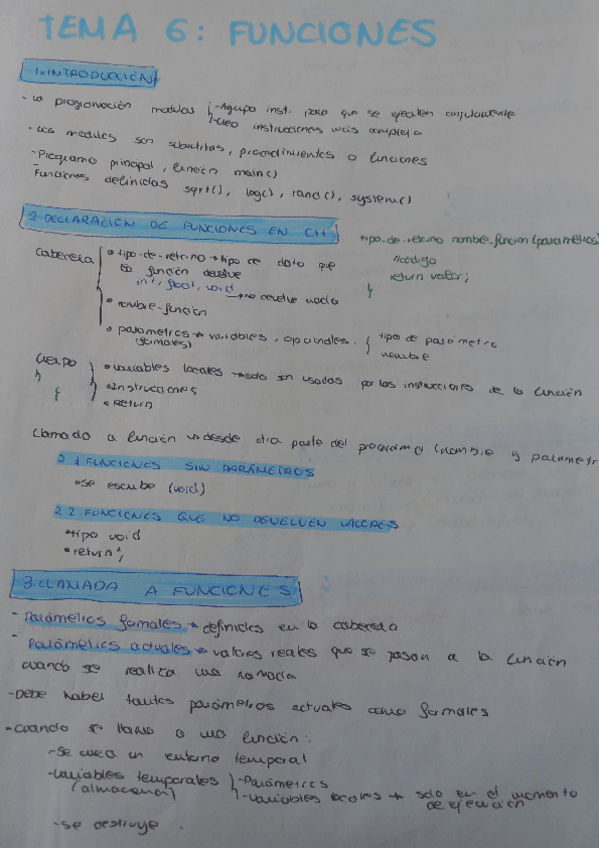 TEMA 6: FUNCIONES
1. INTRODUCCIÓN
- La programación modular { - Agrupa inst. para que se ejecuten conjuntamente
- Creo instrucciones más compleja
- Los módulos son subrutinas, procedimientos o funciones
- Programa principal, función main()
Funciones definidas sqrt(), log(), rand(), system()
2. DECLARACIÓN DE FUNCIONES EN C++
tipo-de-retorno nombre-funcion (parametros)
{ código
return valor;
}
Cabecera { • tipo-de-retorno → tipo de dato que
la función devuelve
int, float, void → no devuelve nada
• nombre-función
• parametros → variables, opcionales. { tipo de parámetro
(formales) nombre
Cuerpo } • variables locales → solo son usadas por las instrucciones de la función
} { • Instrucciones
• Return
Llamada a función → desde otra parte del programa (nombre y parametr
2.1 FUNCIONES SIN PARÁMETROS
• se escribe (void)
2.2 FUNCIONES QUE NO DEVUELVEN VALORES
• tipo void
• return;
3. LLAMADA A FUNCIONES
- Parámetros formales → definidos en la cabecera
- Parámetros actuales → valores reales que se pasan a la función
cuando se realiza una llamada
- Debe haber tantos parámetros actuales como formales
- Cuando se llama a una función:
- Se crea un entorno temporal
- Variables temporales } - Parámetros
(almacenan) - Variables locales → solo en el momento
de ejecución
- Se destruye.